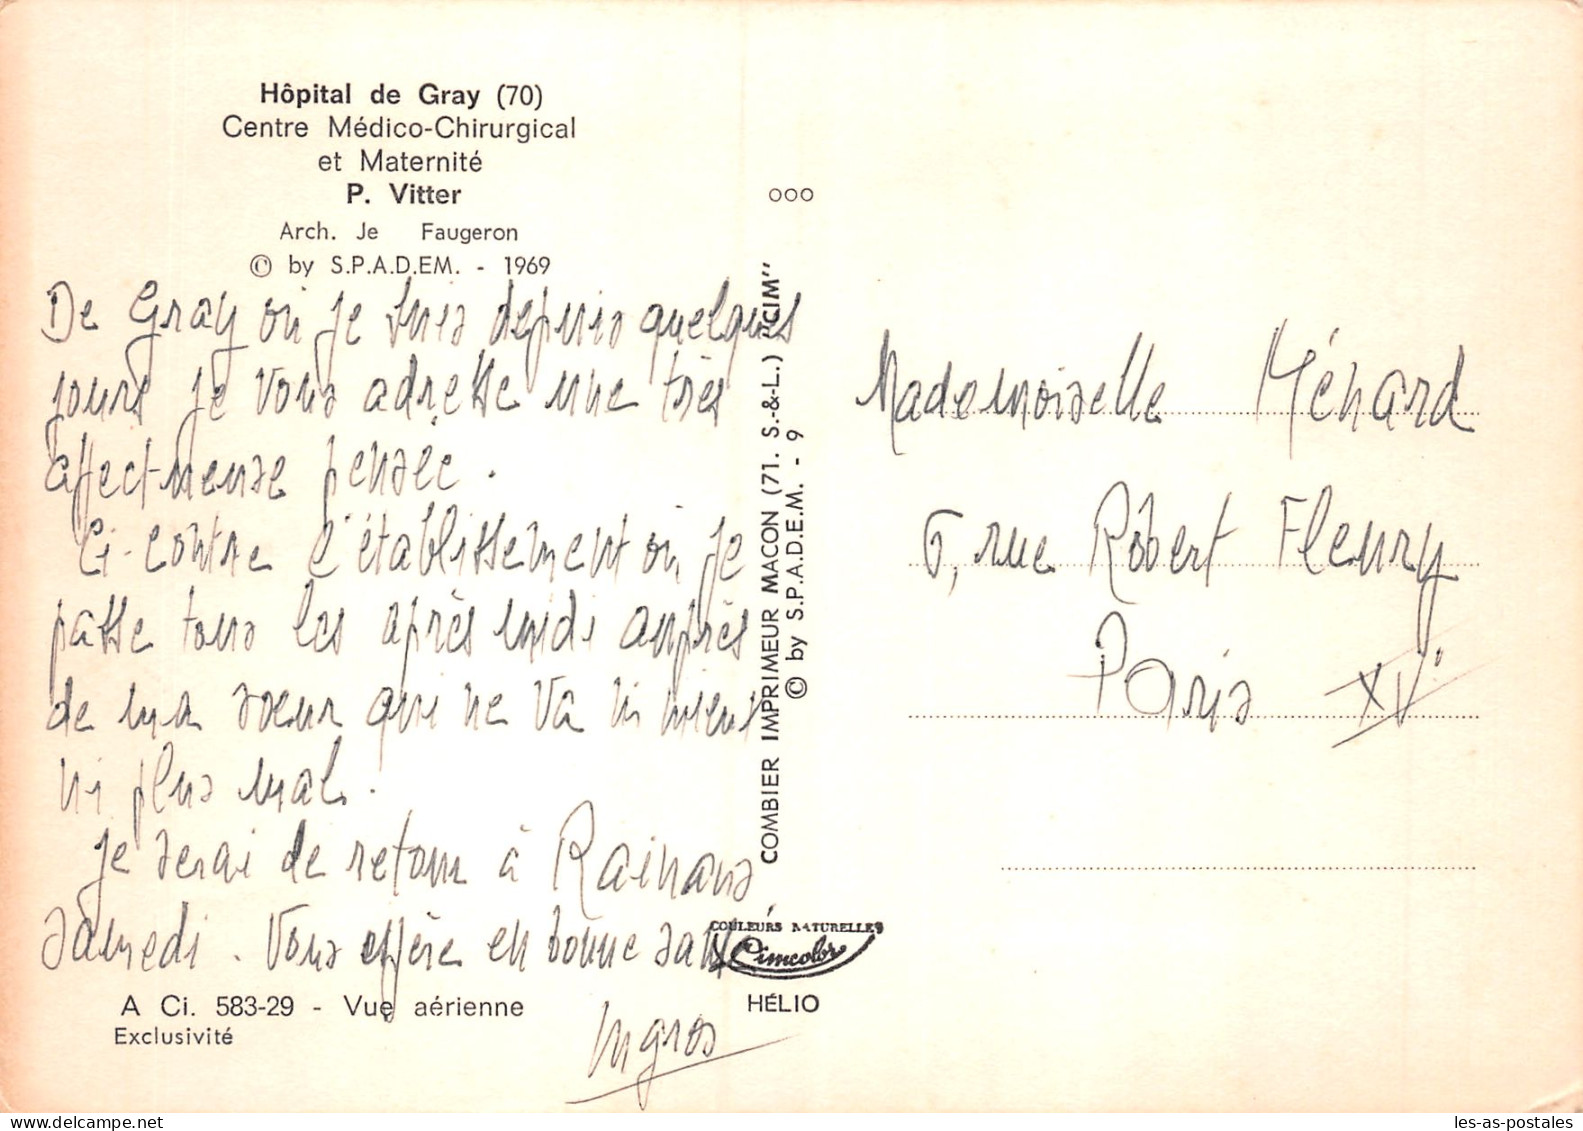 Hôpital de Gray (70)
Centre Médico-Chirurgical
et Maternité
P. Vitter
Arch. Je Faugeron
© by S.P.A.D.EM. - 1969
De Gray où je suis depuis quelques
jours je vous adresse une très
affectueuse pensée.
Ci-contre l'établissement où je
passe tous les après midi auprès
de ma soeur qui ne va ni mieux
ni plus mal.
Je serai de retour à Rainans
samedi. Vous espère en bonne santé
A Ci. 583-29 - Vue aérienne
Exclusivité
COMBIER IMPRIMEUR MACON (71. S.-&-L.) "CIM"
© by S.P.A.D.E.M. - 9
COULEURS NATURELLES
Cimcolor
HÉLIO
ooo
Mademoiselle Ménard
6, rue Robert Fleury
Paris XV°
les-as-postales